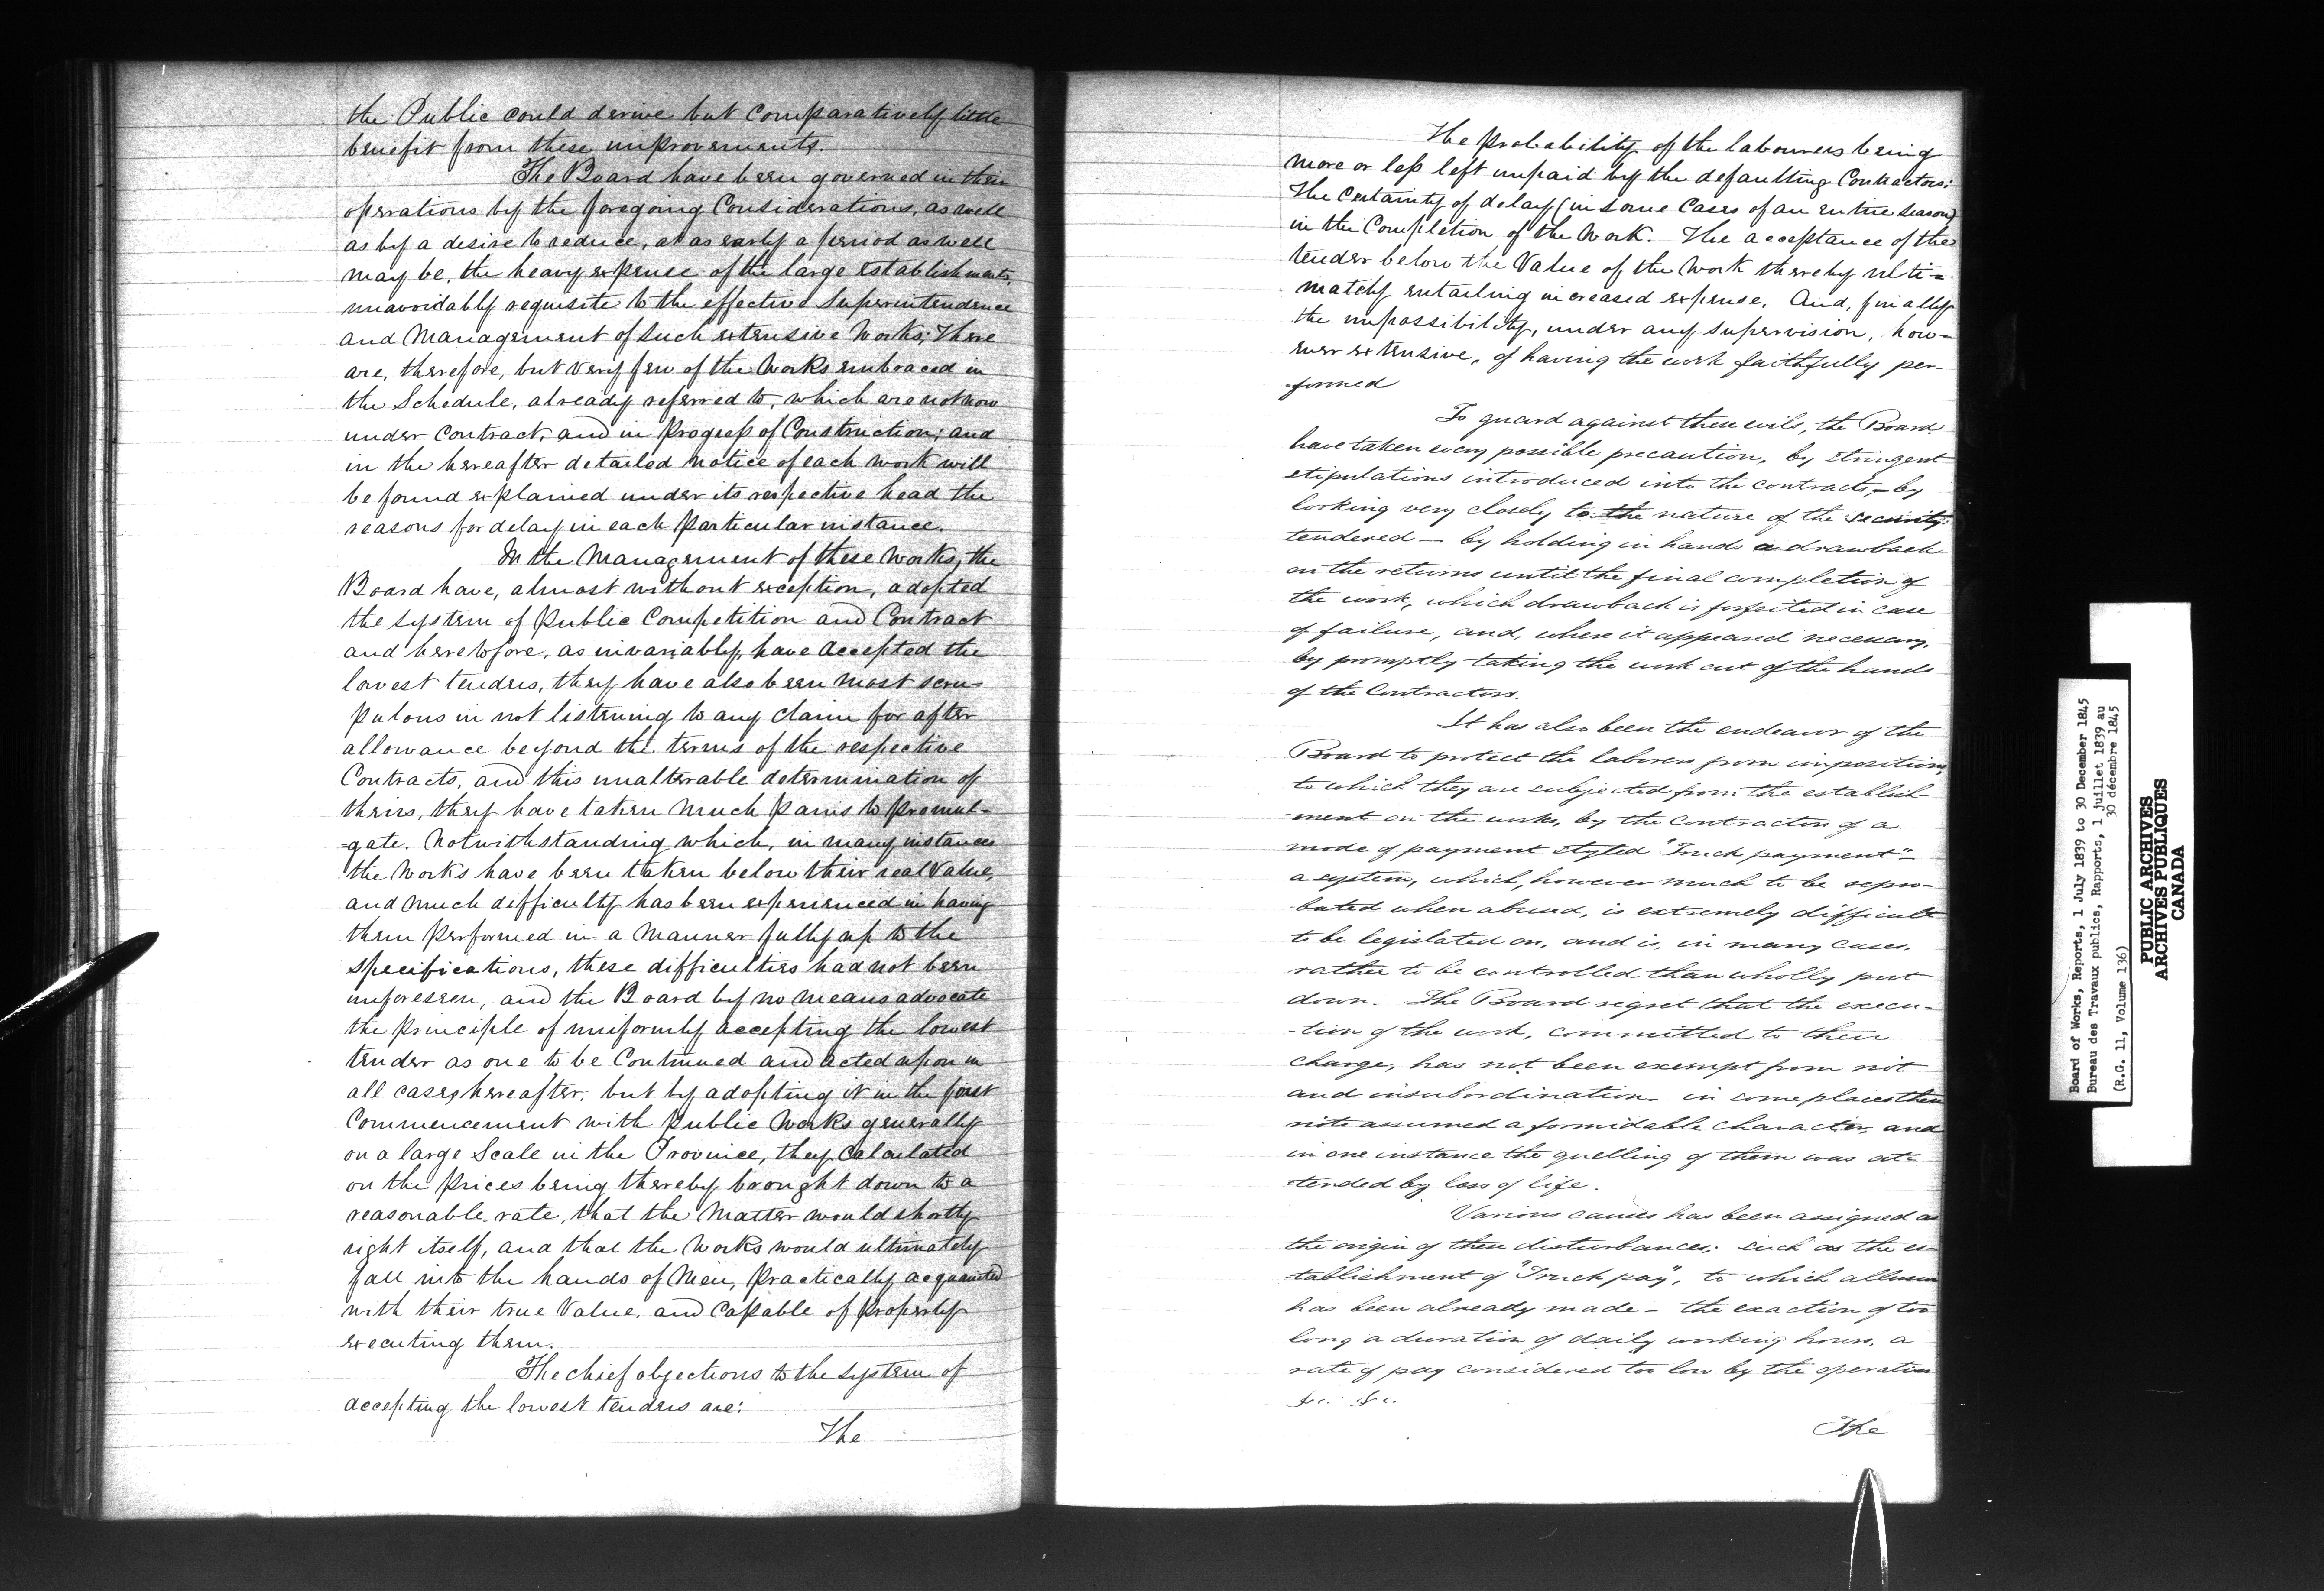 the Public could derive but Comparatively little
benefit from these improvements.
The Board have been governed in their
operations by the foregoing Considerations, as well
as by a desire to reduce, at as early a period as well
may be, the heavy expense of the large establishments,
unavoidably requisite to the effective Superintendence
and Management of such extensive Works; There
are, therefore, but very few of the Works embraced in
the Schedule, already referred to, which are not now
under Contract, and in Progress of Construction; and
in the hereafter detailed notice of each work will
be found explained under its respective head the
reasons for delay in each particular instance.
In the Management of these Works, the
Board have, almost without exception, adopted
the system of Public Competition and Contract
and heretofore, as invariably, have Accepted the
lowest tenders, they have also been most scru-
pulous in not listening to any claim for after
allowance beyond the terms of the respective
Contracts, and this unalterable determination of
theirs, they have taken much pains to promul-
=gate. Notwithstanding which, in many instances
the Works have been taken below their real Value,
and much difficulty has been experienced in having
them performed in a Manner fully up to the
specifications, these difficulties had not been
unforeseen, and the Board by no means advocate
the principle of uniformly accepting the lowest
tender as one to be Continued and acted upon in
all cases hereafter, but by adopting it in the first
Commencement with Public Works generally
on a large Scale in the Province, they Calculated
on the prices being thereby brought down to a
reasonable rate, that the Matter would shortly
right itself, and that the Works would ultimately
fall into the hands of Men, Practically acquainted
with their true Value, and Capable of properly
executing them.
The chief objections to the system of
accepting the lowest tenders are:
The
The probability of the labourers being
more or less left unpaid by the defaulting Contractors:
The Certainty of delay (in some Cases of an entire season)
in the Completion of the Work. The acceptance of the
tender below the Value of the Work thereby ulti=
mately entailing increased expense. And, finally
the impossibility, under any supervision, how-
ever extensive, of having the work faithfully per-
-formed
To guard against these evils, the Board
have taken every possible precaution, by stringent
stipulations introduced into the contracts, - by
looking very closely to the nature of the security
tendered — by holding in hands a drawback
on the returns until the final completion of
the work, which drawback is forfeited in case
of failure, and, where it appeared necessary,
by promptly taking the work out of the hands
of the Contractors.
It has also been the endeavor of the
Board to protect the laborers from impositions,
to which they are subjected from the establish-
-ment on the works, by the contractors of a
mode of payment styled "Truck payment" -
a system, which, however much to be repro-
-bated when abused, is extremely difficult
to be legislated on, and is, in many cases,
rather to be controlled than wholly put
down. The Board regret that the execu-
-tion of the work, committed to their
charge, has not been exempt from riot
and insubordination - in some places these
riots assumed a formidable character, and
in one instance the quelling of them was at-
-tended by loss of life.
Various causes has been assigned as
the origin of these disturbances: such as the es-
-tablishment of "Truck pay", to which allusion
has been already made - the exaction of too
long a duration of daily working hours, a
rate of pay considered too low by the operatives
&c. &c.
The
Board of Works, Reports, 1 July 1839 to 30 December 1845
Bureau des Travaux publics, Rapports, 1 juillet 1839 au
30 décembre 1845
(R.G. 11, Volume 136)
PUBLIC ARCHIVES
ARCHIVES PUBLIQUES
CANADA